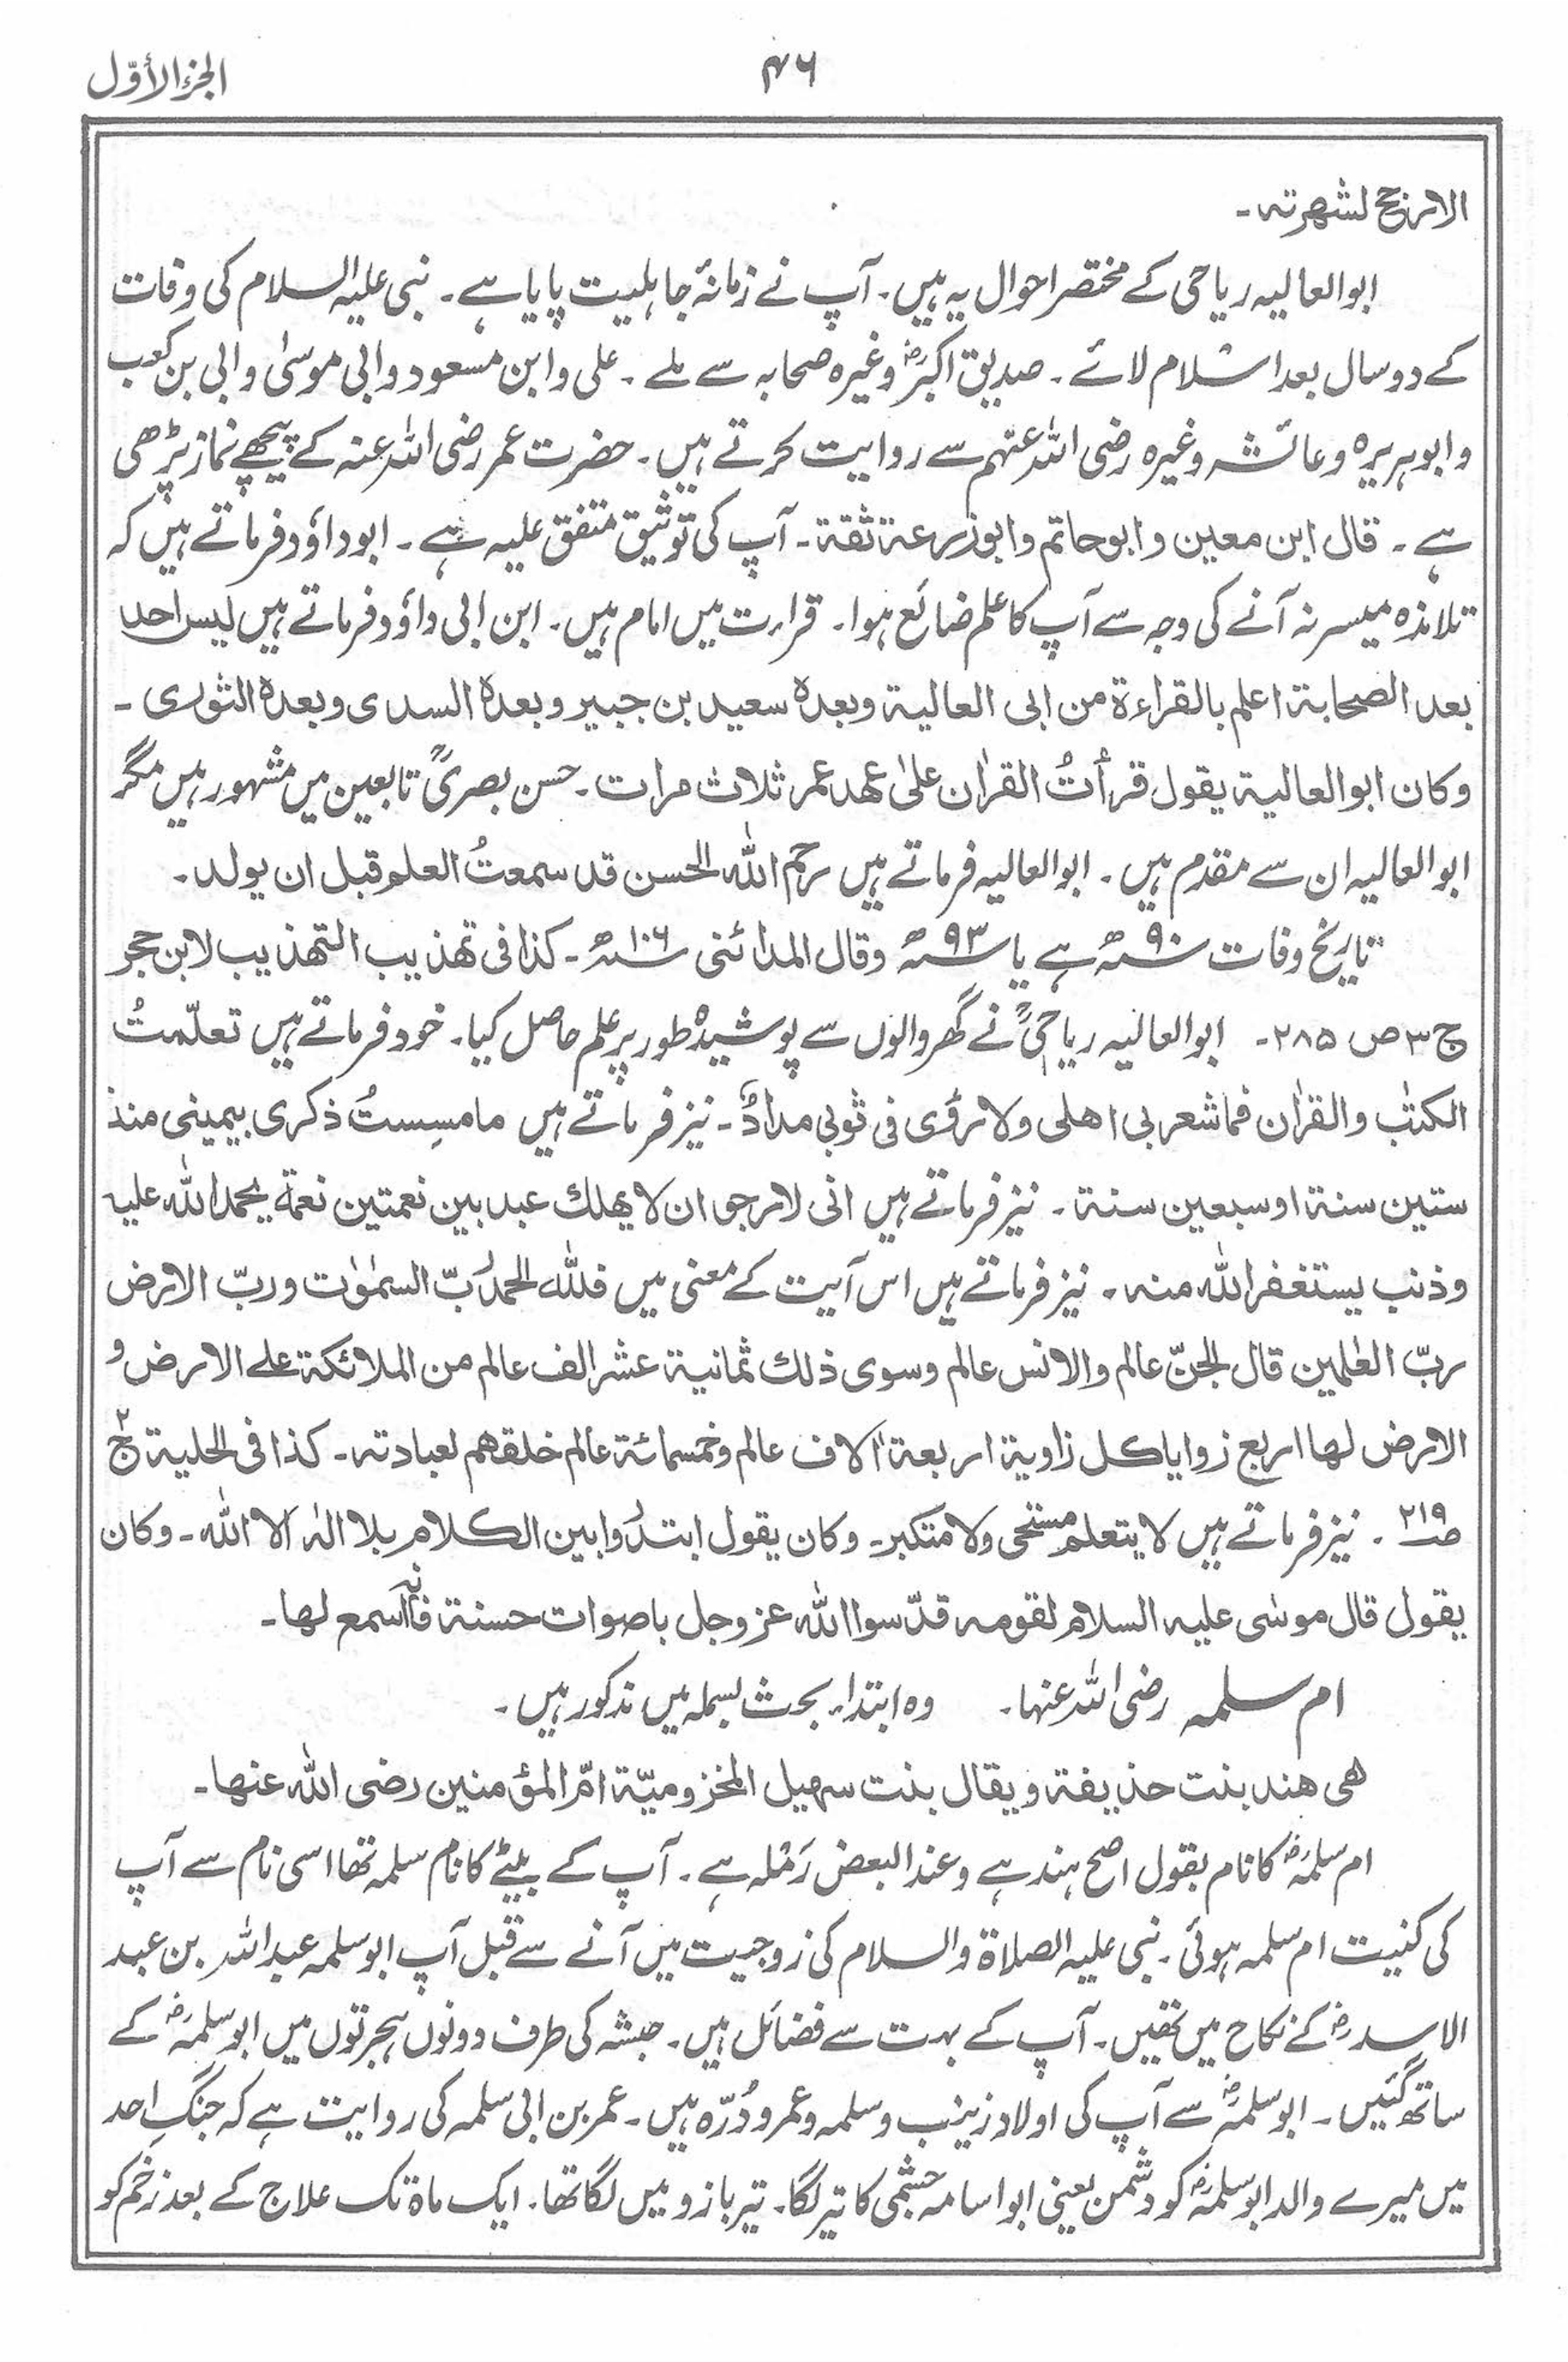 الجزء الأوّل
۴۶
الارنج لشھرتہ۔
ابوالعالیہ ریاحی کے مختصر احوال یہ ہیں۔ آپ نے زمانۂ جاہلیت پایا ہے۔ نبی علیہ السلام کی وفات
کے دو سال بعد اسلام لائے۔ صدیق اکبرؓ وغیرہ صحابہ سے ملے۔ علی وابن مسعود وابی موسٰی وابی بن کعب
وابوہریرہ وعائشہ وغیرہ رضی اللہ عنہم سے روایت کرتے ہیں۔ حضرت عمر رضی اللہ عنہ کے پیچھے نماز پڑھی
ہے۔ قال ابن معین وابوحاتم وابوزرعۃ ثقۃ۔ آپ کی توثیق متفق علیہ ہے۔ ابوداؤد فرماتے ہیں کہ
تلامذہ میسر نہ آنے کی وجہ سے آپ کا علم ضائع ہوا۔ قرارت میں امام ہیں۔ ابن ابی داؤد فرماتے ہیں لیس احد
بعد الصحابۃ اعلم بالقراءۃ من ابی العالیۃ وبعدہ سعید بن جبیر وبعدہ السدی وبعدہ الثوری۔
وکان ابوالعالیۃ یقول قرأتُ القراٰن علٰی عھد عمر ثلاث مرات۔ حسن بصریؒ تابعین میں مشہور ہیں مگر
ابوالعالیہ ان سے مقدم ہیں۔ ابوالعالیہ فرماتے ہیں رحم اللہ الحسن قد سمعتُ العلم قبل ان یولد۔
تاریخ وفات ۹۰ھ ہے یا ۹۳ھ وقال المدائنی ۱۰۶ھ۔ کذا فی تھذیب التھذیب لابن حجر
ج ۳ ص ۲۸۵۔ ابوالعالیہ ریاحیؒ نے گھر والوں سے پوشیدہ طور پر علم حاصل کیا۔ خود فرماتے ہیں تعلّمتُ
الکتٰب والقراٰن فماشعر بی اھلی ولا رؤی فی ثوبی مدادٌ۔ نیز فرماتے ہیں مامسِستُ ذکری بیمینی منذ
ستین سنۃ اوسبعین سنۃ۔ نیز فرماتے ہیں انی لارجو ان لا یھلك عبد بین نعمتین نعمۃ یحمد اللہ علیہ
وذنب یستغفر اللہ منہ۔ نیز فرماتے ہیں اس آیت کے معنی میں فللّٰہ الحمد ربّ السمٰوٰت وربّ الارض
ربّ العٰلمین قال الجنّ عالم والانس عالم وسوی ذلك ثمانیۃ عشر الف عالم من الملائکۃ علے الارض و
الارض لھا اربع زوایا کل زاویۃ اربعۃ اٰلاف عالم وخمسمائۃ عالم خلقھم لعبادتہ۔ کذا فی الحلیۃ ج ۲
ص ۲۱۹۔ نیز فرماتے ہیں لا یتعلم مستحی ولا متکبر۔ وکان یقول ابتدُوا بین الکلام بلا الٰہ الا اللہ۔ وکان
یقول قال موسٰی علیہ السلام لقومہ قدّسوا اللہ عزوجل باصوات حسنۃ فانہ اسمع لھا۔
ام سلمہ رضی اللہ عنہا۔ وہ ابتداء بحث بسملہ میں مذکور ہیں۔
ھی ھند بنت حذیفۃ ویقال بنت سھیل المخزومیّۃ امّ المؤمنین رضی اللہ عنھا۔
ام سلمہؓ کا نام بقول اصح ہند ہے وعند البعض رَملہ ہے۔ آپ کے بیٹے کا نام سلمہ تھا اسی نام سے آپ
کی کنیت ام سلمہ ہوئی۔ نبی علیہ الصلاۃ والسلام کی زوجیت میں آنے سے قبل آپ ابوسلمہ عبداللہ بن عبد
الاسدؓ کے نکاح میں تھیں۔ آپ کے بہت سے فضائل ہیں۔ حبشہ کی طرف دونوں ہجرتوں میں ابوسلمہؓ کے
ساتھ گئیں۔ ابوسلمہؓ سے آپ کی اولاد زینب وسلمہ وعمر ودُرّہ ہیں۔ عمر بن ابی سلمہ کی روایت ہے کہ جنگِ احد
میں میرے والد ابوسلمہؓ کو دشمن یعنی ابواسامہ جشمی کا تیر لگا۔ تیر بازو میں لگا تھا۔ ایک ماہ تک علاج کے بعد زخم کو